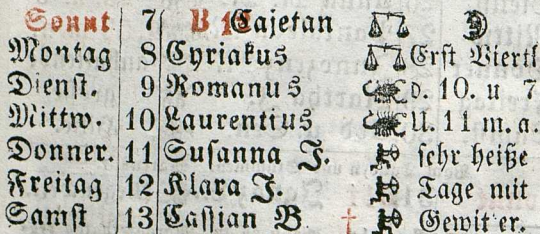 Sonnt 7 B 1 Cajetan
Montag 8 Cyriakus Erst Viertl
Dienst. 9 Romanus d. 10. u 7
Mittw. 10 Laurentius U. 11 m. a.
Donner. 11 Susanna J. sehr heiße
Freitag 12 Klara J. Tage mit
Samst 13 Cassian B † Gewit er.